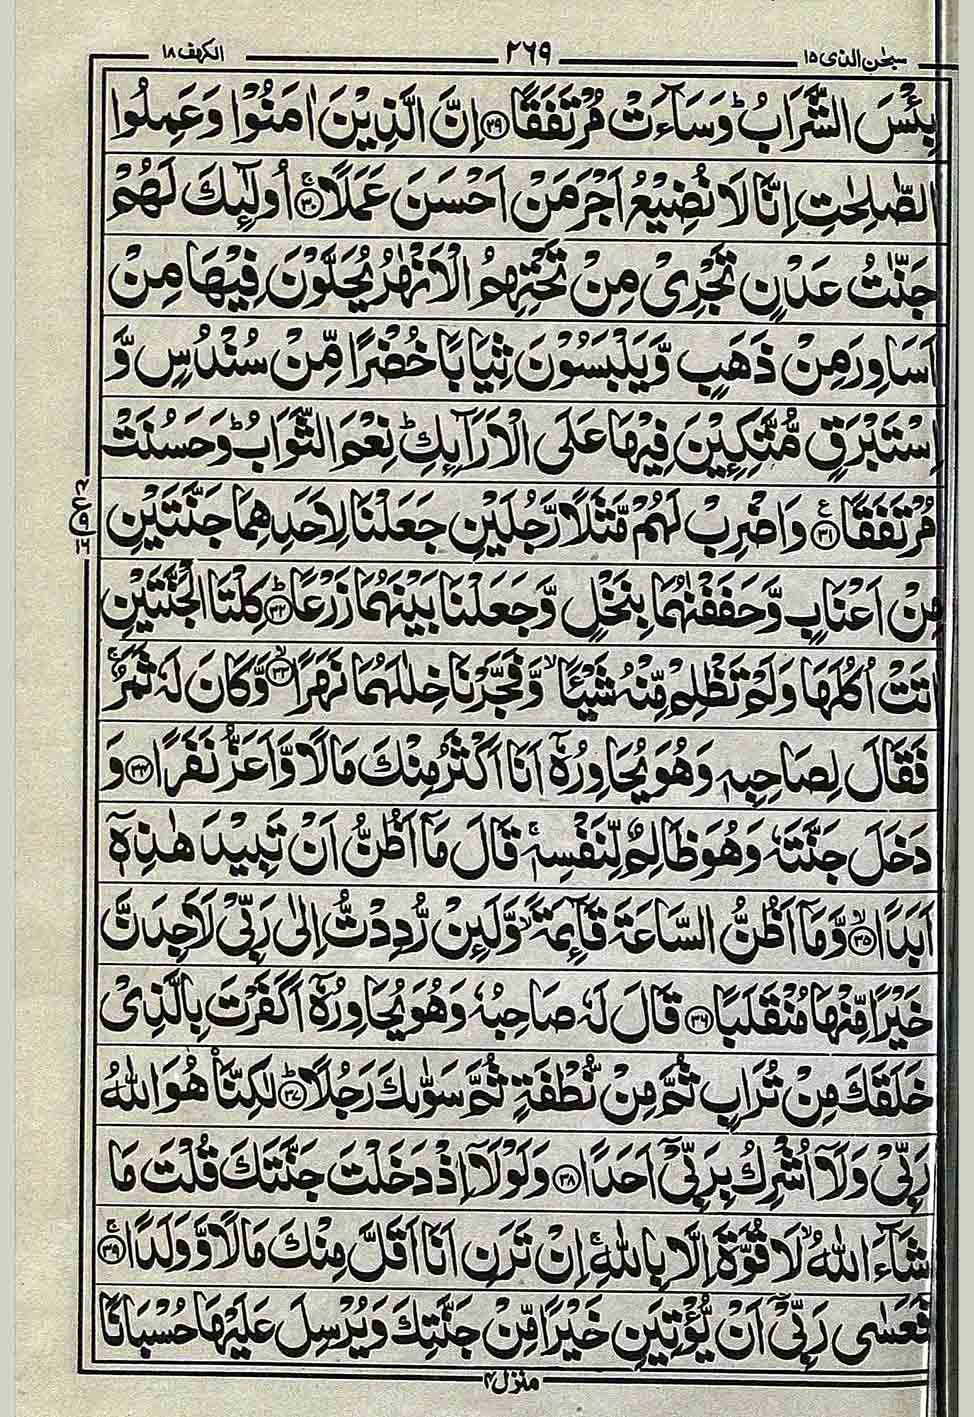 سبحٰن الذی ۱۵ ۲۶۹ الکہف ۱۸
بِئْسَ الشَّرَابُ ؕ وَسَآءَتْ مُرْتَفَقًا ﴿۲۹﴾ اِنَّ الَّذِيْنَ اٰمَنُوْا وَعَمِلُوا
الصّٰلِحٰتِ اِنَّا لَا نُضِيْعُ اَجْرَ مَنْ اَحْسَنَ عَمَلًا ﴿۳۰﴾ۚ اُولٰٓئِكَ لَهُمْ
جَنّٰتُ عَدْنٍ تَجْرِيْ مِنْ تَحْتِهِمُ الْاَنْهٰرُ يُحَلَّوْنَ فِيْهَا مِنْ
اَسَاوِرَ مِنْ ذَهَبٍ وَّيَلْبَسُوْنَ ثِيَابًا خُضْرًا مِّنْ سُنْدُسٍ وَّ
اِسْتَبْرَقٍ مُّتَّكِـِٕيْنَ فِيْهَا عَلَى الْاَرَآئِكِ ؕ نِعْمَ الثَّوَابُ ؕ وَحَسُنَتْ
مُرْتَفَقًا ﴿۳۱﴾ۧ وَاضْرِبْ لَهُمْ مَّثَلًا رَّجُلَيْنِ جَعَلْنَا لِاَحَدِهِمَا جَنَّتَيْنِ
ع ۹ ۱۶
مِنْ اَعْنَابٍ وَّحَفَفْنٰهُمَا بِنَخْلٍ وَّجَعَلْنَا بَيْنَهُمَا زَرْعًا ﴿۳۲﴾ؕ كِلْتَا الْجَنَّتَيْنِ
اٰتَتْ اُكُلَهَا وَلَمْ تَظْلِمْ مِّنْهُ شَيْئًا ۙ وَّفَجَّرْنَا خِلٰلَهُمَا نَهَرًا ﴿۳۳﴾ۙ وَّكَانَ لَهٗ ثَمَرٌ ۚ
فَقَالَ لِصَاحِبِهٖ وَهُوَ يُحَاوِرُهٗٓ اَنَا اَكْثَرُ مِنْكَ مَالًا وَّاَعَزُّ نَفَرًا ﴿۳۴﴾ وَ
دَخَلَ جَنَّتَهٗ وَهُوَ ظَالِمٌ لِّنَفْسِهٖ ۚ قَالَ مَاۤ اَظُنُّ اَنْ تَبِيْدَ هٰذِهٖۤ
اَبَدًا ﴿۳۵﴾ۙ وَّمَاۤ اَظُنُّ السَّاعَةَ قَآئِمَةً ۙ وَّلَئِنْ رُّدِدْتُّ اِلٰى رَبِّيْ لَاَجِدَنَّ
خَيْرًا مِّنْهَا مُنْقَلَبًا ﴿۳۶﴾ قَالَ لَهٗ صَاحِبُهٗ وَهُوَ يُحَاوِرُهٗٓ اَكَفَرْتَ بِالَّذِيْ
خَلَقَكَ مِنْ تُرَابٍ ثُمَّ مِنْ نُّطْفَةٍ ثُمَّ سَوّٰىكَ رَجُلًا ﴿۳۷﴾ؕ لٰكِنَّا۠ هُوَ اللّٰهُ
رَبِّيْ وَلَاۤ اُشْرِكُ بِرَبِّيْۤ اَحَدًا ﴿۳۸﴾ وَلَوْلَاۤ اِذْ دَخَلْتَ جَنَّتَكَ قُلْتَ مَا
شَآءَ اللّٰهُ ۙ لَا قُوَّةَ اِلَّا بِاللّٰهِ ۚ اِنْ تَرَنِ اَنَا اَقَلَّ مِنْكَ مَالًا وَّوَلَدًا ﴿۳۹﴾ۚ
فَعَسٰى رَبِّيْۤ اَنْ يُّؤْتِيَنِ خَيْرًا مِّنْ جَنَّتِكَ وَيُرْسِلَ عَلَيْهَا حُسْبَانًا
منزل ۴